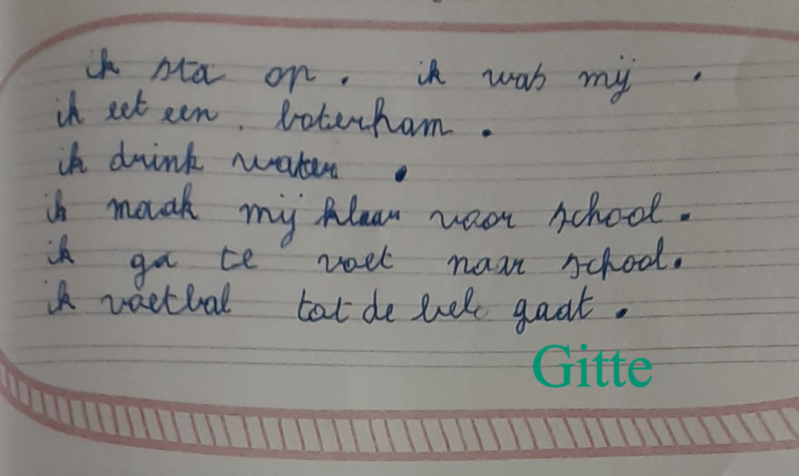 ik sta op. ik was mij .
ik eet een . boterham .
ik drink water .
ik maak mij klaar voor school.
ik ga te voet naar school.
ik voetbal tot de bel gaat .
Gitte